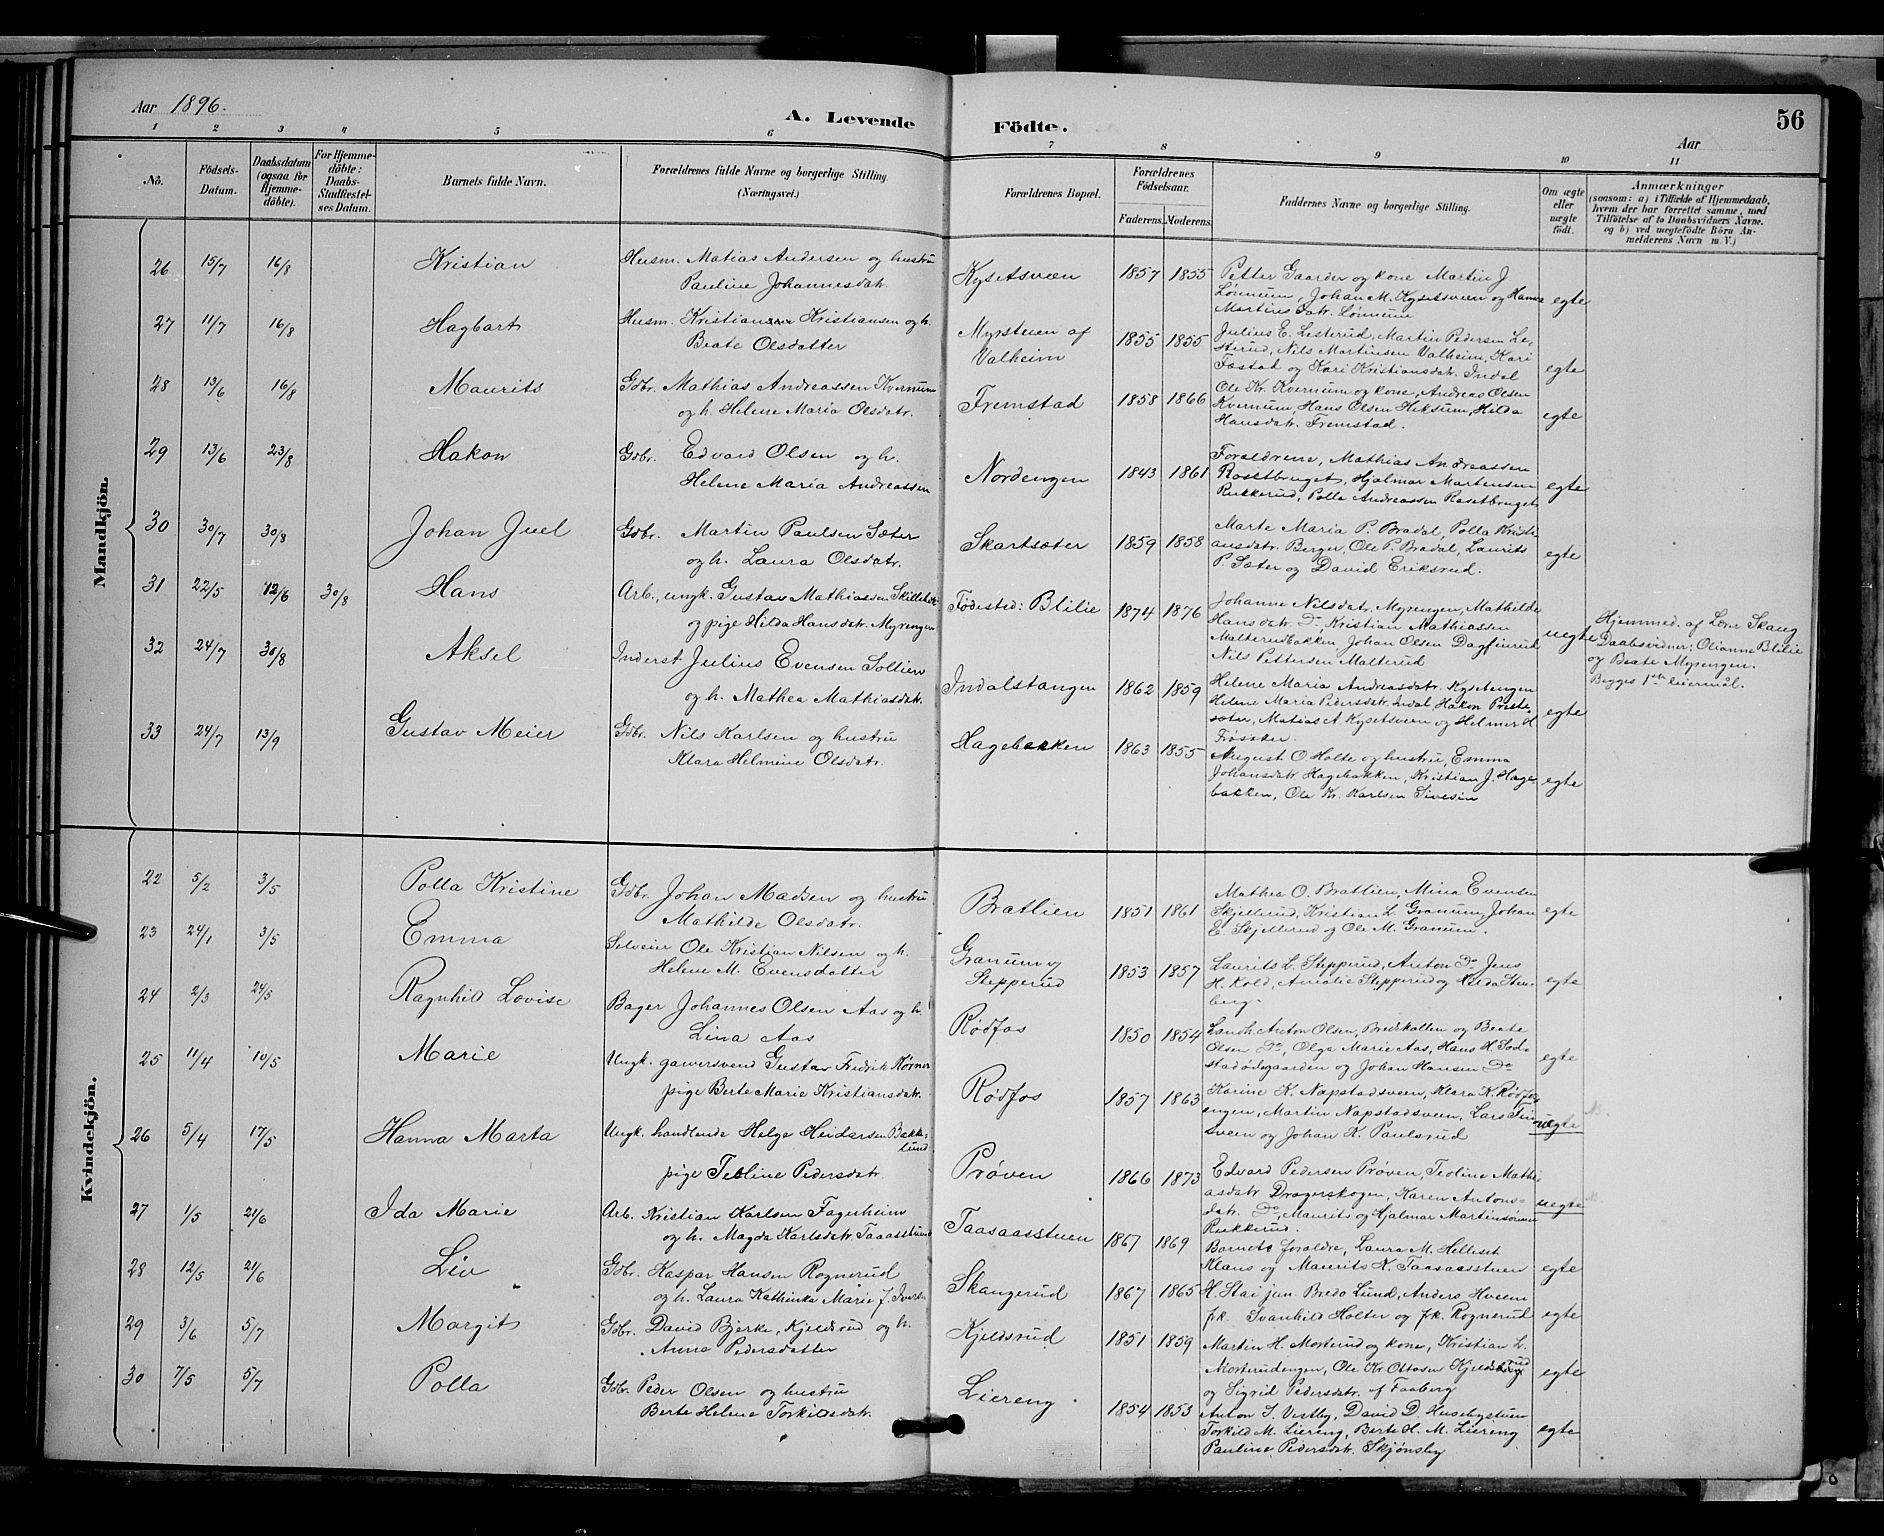 Aar 1896.
A. Levende Födte.
Aar
56
1 2 3 4 5 6 7 8 9 10 11
No.
Födsels-Datum.
Daabsdatum (ogsaa for Hjemme-döbte).
For Hjemme-döbte: Daabs-Stadfæstel-ses Datum.
Barnets fulde Navn.
Forældrenes fulde Navne og borgerlige Stilling.
(Næringsvei.)
Forældrenes Bopæl.
Forældrenes Födselsaar.
Faderens. Moderens.
Faddernes Navne og borgerlige Stilling.
Om ægte eller uægte födt.
Anmærkninger
(saasom: a) i Tilfælde af Hjemmedaab, hvem der har forrettet samme, med Tilföielse af to Daabsvidners Navne. og b) ved uægtefödte Börn An-melderens Navn m. V.)
Mandkjön.
26 15/7 16/8 Kristian
Husm. Matias Andersen og hustru
Pauline Johannesdatr.
Kysetsveen 1857 1855
Petter Gaarder og kone Martin J
Lønnum, Johan M. Kysetsveen og Hanna
Martinsdatr. Lønnum
egte
27 11/7 16/8 Hagbart
Husm. Kristian Kristiansen og h.
Beate Olsdatter
Myrstuen af
Valheim
1855 1855
Julius E. Lesterud, Martin Pedersen Le-
sterud, Nils Martinsen Valheim, Kari
Fæstad og Kari Kristiansdatr. Indal
egte
28 13/6 16/8 Maurits
Gdbr. Mathias Andreassen Kvernum
og h. Helene Maria Olsdatr.
Fremstad 1858 1866
Ole Kr. Kvernum og kone, Andreas Olsen
Kvernum, Hans Olsen Heksum, Hilda
Hansdatr. Fremstad.
egte
29 13/6 23/8 Hakon
Gdbr. Edvard Olsen og h.
Helene Maria Andreassen
Nordengen 1843 1861
Forældrene, Mathias Andreassen
Rosetbruget, Hjalmar Martensen
Rukkerud, Polla Andreassen Rosetbruget
egte
30 30/7 30/8 Johan Juel
Gdbr. Martin Paulsen Sæter
og h. Laura Olsdatr.
Skartsæter 1859 1858
Marte Maria P. Bradal, Polla Kristi-
ansdatr. Berger, Ole P. Bradal, Laurits
P. Sæter og David Eriksrud.
egte
31 22/5 12/6 30/8 Hans
Arb., ungk. Gustav Mathiassen
og pige Hilda Hansdatr. Myrengen
Fødested: Blilie 1874 1876
Johanne Nilsdatr. Myrengen, Mathilde
Hansdatr. Do, Kristian Mathiassen
Malterudbakken Johan Olsen Dagfinrud
Nils Pettersen Malterud
uegte
Hjemmed. af Lærer Skaug
Daabsvidner: Olianne Blilie
og Beate Myrengen.
Begges 1ste leiermål.
32 24/7 30/8 Aksel
Inderst Julius Evensen Sollien
og h. Mathea Mathiasdatr.
Indalstangen 1862 1859
Helene Maria Andreasdatr. Kysetengen
Helene Maria Pedersdatr. Indal Hakon Preste-
sæter, Matias A. Kysetsveen og Helmer H.
Frøsaker.
egte
33 24/7 13/9 Gustav Meier
Gdbr. Nils Karlsen og hustru
Klara Helmine Olsdatr.
Hagebakken 1863 1855
August O Holte og hustru, Emma
Johansdatr. Hagebakken, Kristian J. Hage-
bakken, Ole Kr. Karlsen Sivesin
egte
Kvindekjön.
22 5/2 3/5 Polla Kristine
Gdbr. Johan Madsen og hustru
Mathilde Olsdatr.
Bratlien 1851 1861
Mathea O. Bratlien, Mina Evensen
Skjellerud, Kristian L. Granum, Johan
E. Skjellerud og Ole M. Granum.
egte
23 24/1 3/5 Emma
Selveier Ole Kristian Nilsen og h.
Helene M. Evensdatter
Granum og
Stepperud
1853 1857
Laurits L. Stepperud, Anton Do Jens
H. Kold, Amalie Stepperud og Hilda Sten-
berg.
egte
24 2/3 24/5 Ragnhild Lovise
Bager Johannes Olsen Aas og h.
Lina Aas
Rødfos 1850 1854
Landh. Anton Olsen, Bredskallen og Beate
Olsen Do, Olga Marie Aas, Hans H. Sod-
stadødegaarden og Johan Hansen Do
egte
25 11/4 10/5 Marie
Ungk. garversvend Gustav Fredrik Hørner
pige Berte Marie Kristiansdatr.
Rødfos 1857 1863
Karine K. Næpstadsveen, Klara K. Rødfos-
engen, Martin Næpstadsveen, Lars
sveen og Johan K. Paulsrud
uegte
26 5/4 17/5 Hanna Marta
Ungk. handlende Helge Heidarsen Bakke-
lund
pige Teoline Pedersdatr.
Prøven 1866 1873
Edvard Pedersen Prøven, Teoline Mathi-
asdatr. Dragerskogen, Karen Antons-
datr. Do, Maurits og Hjalmar Martinsønner
Rukkerud.
uegte
27 1/5 21/6 Ida Marie
Arb. Kristian Karlsen Fagerheim
og h. Magda Karlsdatr. Taaasstuen
Taasaasstuen 1867 1869
Barnets forældre, Laura M. Helliset
Klaus og Maurits K. Taasaasstuen
egte
28 12/5 21/6 Liv
Gdbr. Kaspar Hansen Rognerud
og h. Laura Kathinka Marie f. Iversen
Skangerud 1867 1865
H. Stai jun. Bredo Lund, Anders Hveem
frk. Svanhild Holter og frk. Rognerud
egte
29 3/6 5/7 Margit
Gdbr. David Bjerke, Kjeldsrud og h.
Anne Pedersdatter
Kjeldsrud 1851 1859
Martin H. Morterud og kone, Kristian L.
Morterudengen, Ole Kr. Ottosen Kjeldsrud
og Sigrid Pedersdatr. af Faaberg
egte
30 7/5 5/7 Polla
Gdbr. Peder Olsen og hustru
Berte Helene Torkildsdatr.
Liereng 1854 1853
Anton S. Vestby, David D. Husebystuen
Torkild M. Liereng, Berte H. M. Liereng
Pauline Pedersdatr. Skjønsby
egte